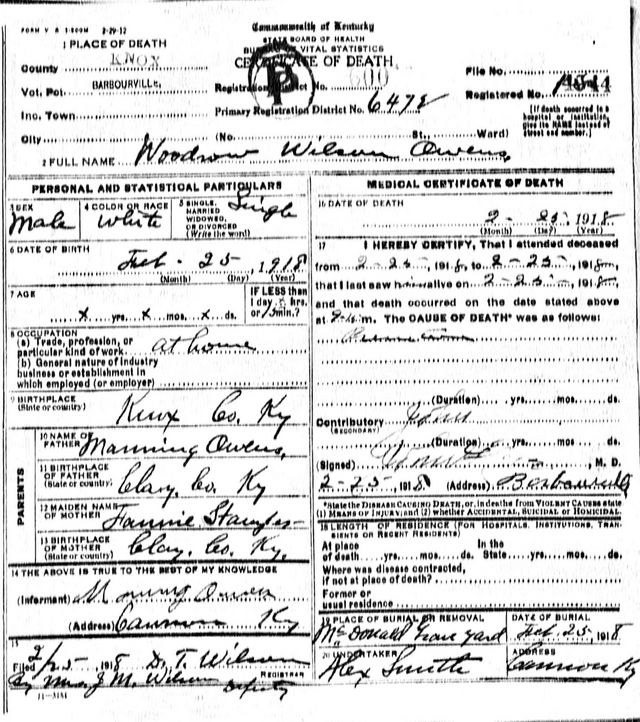 FORM V S 1-500M 2-29-12
Commonwealth of Kentucky
STATE BOARD OF HEALTH
BUREAU OF VITAL STATISTICS
CERTIFICATE OF DEATH
1 PLACE OF DEATH
County KNOX
Vot. Pct BARBOURVILLE,
Inc. Town
City
Registration District No. 600
Primary Registration District No. 6472
File No.
Registered No.
(No. St., Ward)
[If death occurred in a hospital or institution, give its NAME instead of street and number.]
2 FULL NAME Woodrow Wilson Owens,
PERSONAL AND STATISTICAL PARTICULARS
3 SEX Male
4 COLOR OR RACE White
5 SINGLE, MARRIED WIDOWED, OR DIVORCED (Write the word) Single
6 DATE OF BIRTH
Feb - 25, 1918
(Month) (Day) (Year)
7 AGE
x yrs. x mos. x ds.
IF LESS than 1 day x hrs. or 15 min.?
8 OCCUPATION
(a) Trade, profession, or particular kind of work at home
(b) General nature of industry business or establishment in which employed (or employer)
9 BIRTHPLACE (State or country) Knox Co. Ky
PARENTS
10 NAME OF FATHER Manning Owens,
11 BIRTHPLACE OF FATHER (State or country) Clay. Co. Ky
12 MAIDEN NAME OF MOTHER Fannie
13 BIRTHPLACE OF MOTHER (State or country) Clay. Co. Ky.
14 THE ABOVE IS TRUE TO THE BEST OF MY KNOWLEDGE
(Informant) Owens
(Address) Cannon Ky
15
Filed 2/25, 1918 D. T. Wilson
REGISTRAR
By Mrs. J M. Wilson Deputy
11-3151
MEDICAL CERTIFICATE OF DEATH
16 DATE OF DEATH
2 - 25, 1918
(Month) (Day) (Year)
17 I HEREBY CERTIFY, That I attended deceased
from 2-25, 1918, to 2-25, 1918,
that I last saw him alive on 2-25, 1918,
and that death occurred on the date stated above
at m. The CAUSE OF DEATH* was as follows:
(Duration) yrs. mos. ds.
Contributory
(SECONDARY)
(Duration) yrs. mos. ds.
(Signed) M. D.
2-25, 1918 (Address) Barbourville
*State the DISEASE CAUSING DEATH, or, in deaths from VIOLENT CAUSES state (1) MEANS OF INJURY; and (2) whether ACCIDENTAL, SUICIDAL OR HOMICIDAL.
18 LENGTH OF RESIDENCE (FOR HOSPITALS, INSTITUTIONS, TRANSIENTS OR RECENT RESIDENTS)
At place of death yrs. mos. ds. In the State yrs. mos. ds.
Where was disease contracted, if not at place of death?
Former or usual residence
19 PLACE OF BURIAL OR REMOVAL McDonald Grave yard
DATE OF BURIAL Feb. 25, 1918
20 UNDERTAKER Alex Smith
ADDRESS Cannon Ky